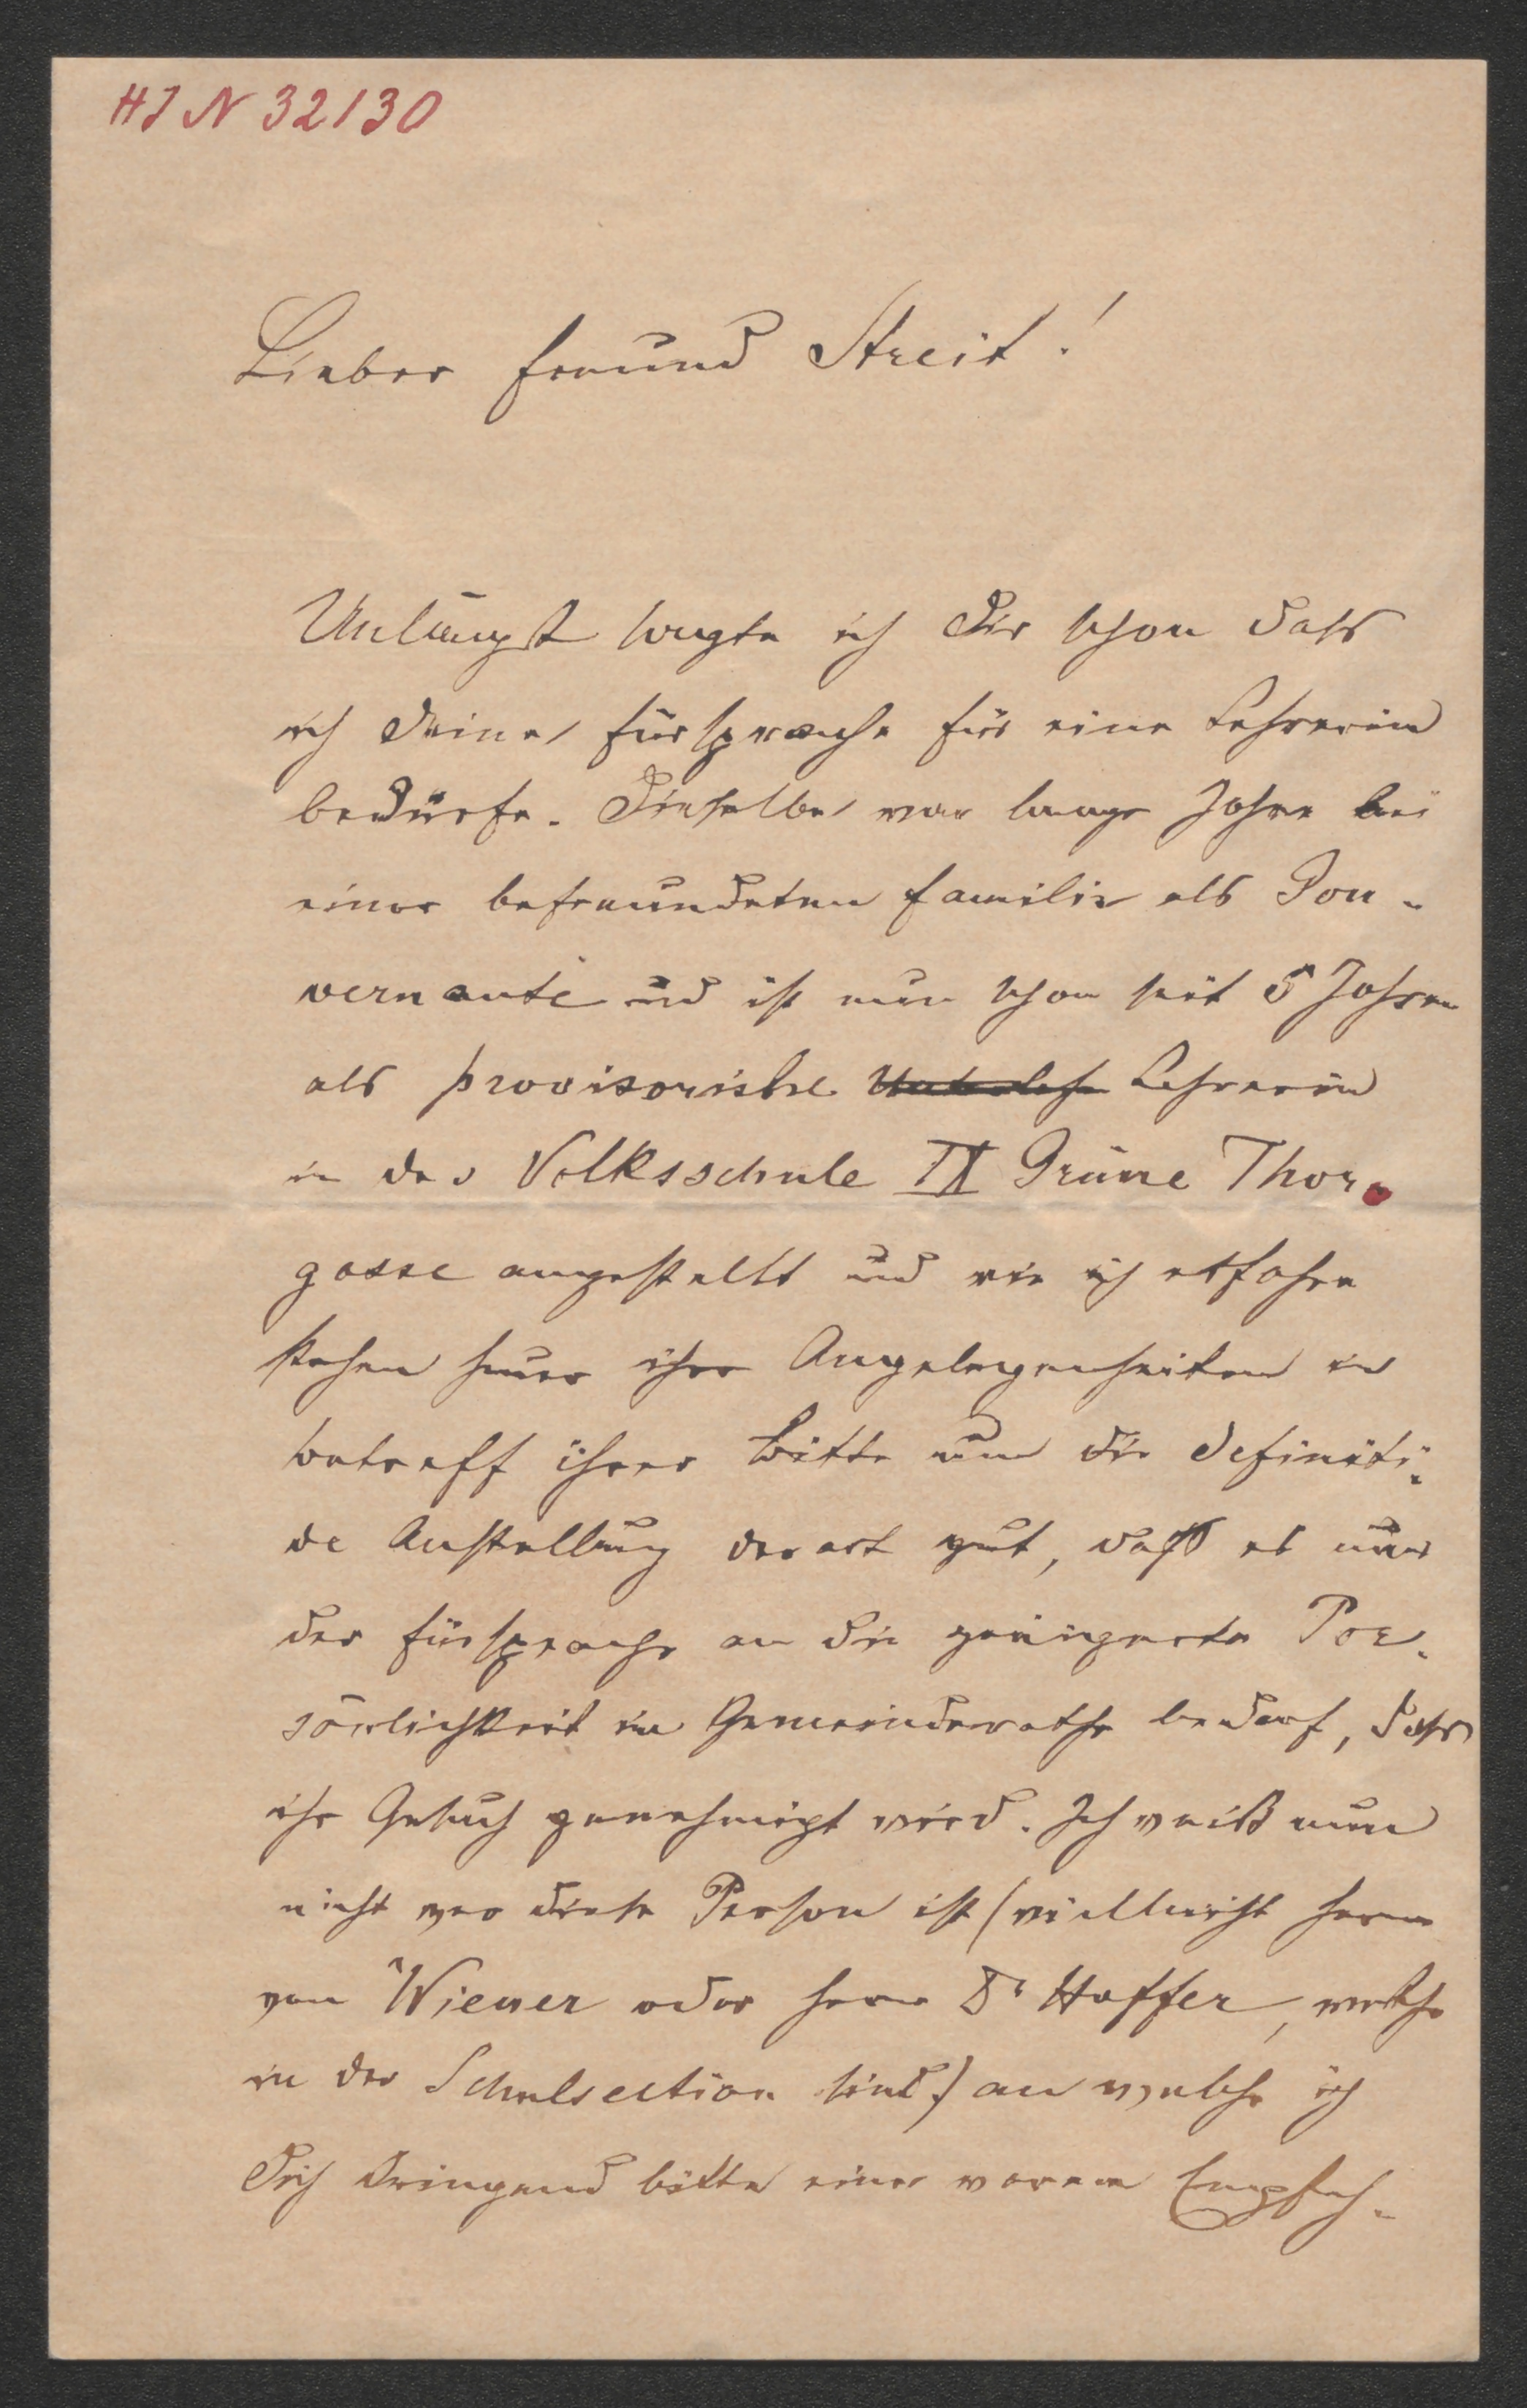 HIN 32130
Lieber Freund Streit!
Unlängst sagte ich Dir schon dass
ich Deine Fürsprache für eine Lehrerin
bedürfe. Dieselbe war lange Jahre bei
einer befreundeten Familie als Gou-
vernante und ist nun schon seit 5 Jahren
als provisorische Unterleh Lehrerin
in der Volksschule IX Grüne Thor-
gasse angestellt und wie ich erfahre
stehen ihre Angelegenheiten in
betreff ihrer Bitte um die definiti-
ve Anstellung derart gut, daß es nur
der Fürsprache an die geeignete Per-
sönlichkeit im Gemeinderathe bedarf, dass
ihr Gesuch genehmigt wird. Ich weiß nun
nicht wer diese Person ist (vielleicht Herr
von Wiener oder Herr Dr Hoffer, welche
in der Schulsection sind) an welche ich
Dich dringend bitte eine warme Empfeh-